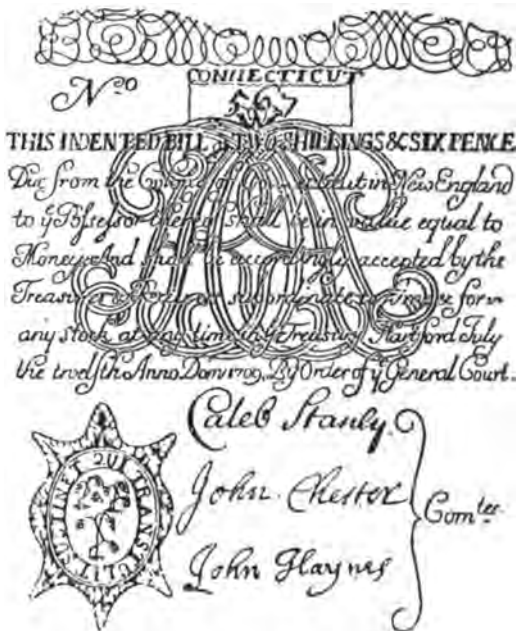 CONNECTICUT
No
567
THIS INDENTED BILL of TWO SHILLINGS & SIX PENCE
Due from the Colony of Connecticut in New England
to ye Possessor thereof shall be in value equal to
Money And shall be accordingly accepted by the
Treasurer & Receivers subordinate to him for
any stock at any time in ye Treasury Hartford July
the twelfth Anno Dom 1709 By Order of ye General Court.
Caleb Stanly
John Chester
John Haynes
Comtee
SUSTINET QUI TRANSTULIT